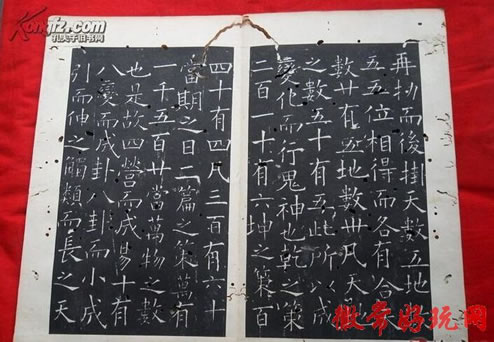 Kongfz.com
孔夫子旧书网
再扐而後掛天數五地
五五位相得而各有合
數廿有五地數卅凡天
之數五十有五此所以成
變化而行鬼神也乾之策
二百一十有六坤之策百
四十有四凡三百有六十
當期之日二篇之策萬有
一千五百廿當萬物之數
也是故四營而成易十有
八變而成卦八卦而小成
引而伸之觸類而長之天
常好玩网